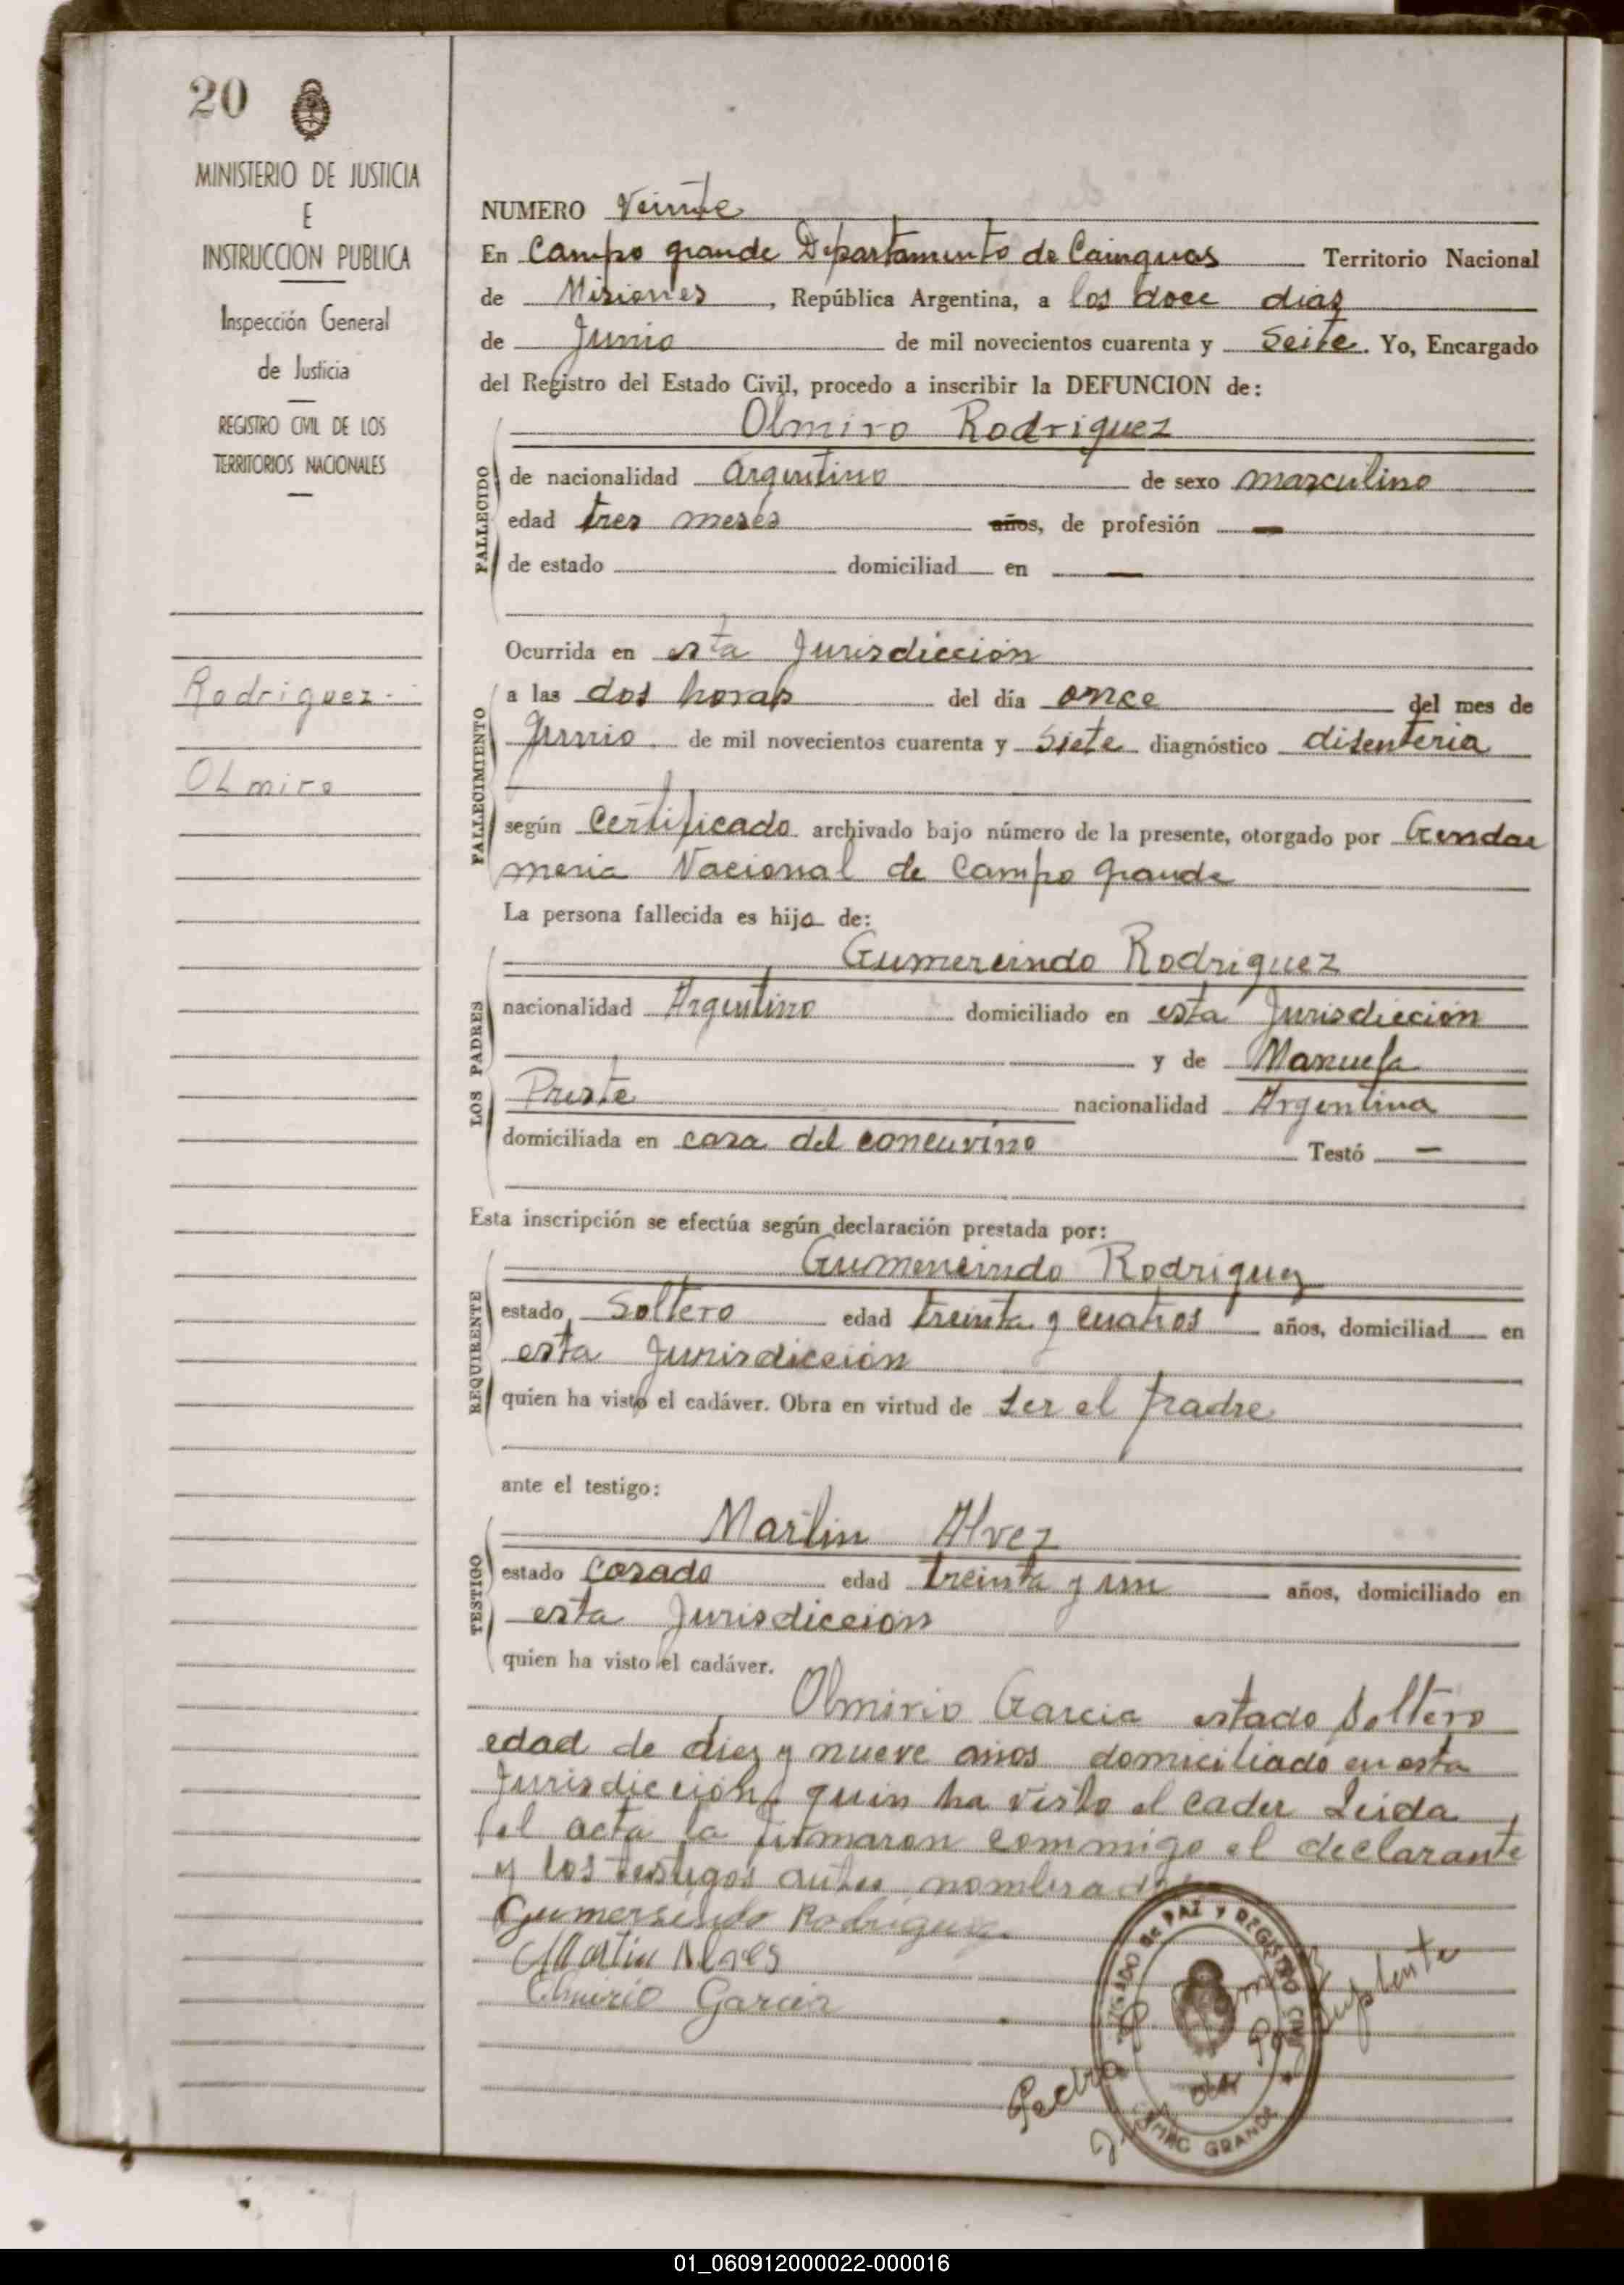 20
MINISTERIO DE JUSTICIA
E
INSTRUCCION PUBLICA
Inspección General
de Justicia
REGISTRO CIVIL DE LOS
TERRITORIOS NACIONALES
Rodriguez
Olmiro
NUMERO Veinte
En Campo grande Departamento de Cainguas Territorio Nacional
de Misiones, República Argentina, a los doce dias
de Junio de mil novecientos cuarenta y Seite. Yo, Encargado
del Registro del Estado Civil, procedo a inscribir la DEFUNCION de:
Olmiro Rodriguez
FALLECIDO
de nacionalidad Argentino de sexo masculino
edad tres meses años, de profesión —
de estado domiciliad en —
Ocurrida en esta Jurisdicción
FALLECIMIENTO
a las dos horas del día once del mes de
Junio de mil novecientos cuarenta y Siete diagnóstico disenteria
según Certificado archivado bajo número de la presente, otorgado por Gendar
meria Nacional de Campo grande
La persona fallecida es hijo de:
Gumercindo Rodriguez
LOS PADRES
nacionalidad Argentino domiciliado en esta Jurisdicción
y de Manuela
Preste nacionalidad Argentina
domiciliada en casa del concuvino Testó —
Esta inscripción se efectúa según declaración prestada por:
Gumercindo Rodriguez
REQUIRENTE
estado Soltero edad treinta y cuatros años, domiciliad en
esta Jurisdicción
quien ha visto el cadáver. Obra en virtud de ser el padre
ante el testigo:
Martin Alvez
TESTIGO
estado Casado edad treinta y un años, domiciliado en
esta Jurisdiccion
quien ha visto el cadáver.
Olmirio Garcia estado Soltero
edad de diez y nueve años domiciliado en esta
Jurisdicción, quin ha visto el cader Leida
el acta la firmaron commigo el declarante
y los testigos antes nombrados
Gumersindo Rodriguez
Martin Alves
Olmirio Garcia
JUZGADO DE PAZ Y REGISTRO CIVIL
CAMPO GRANDE
Pedro
Suplente
01_060912000022-000016